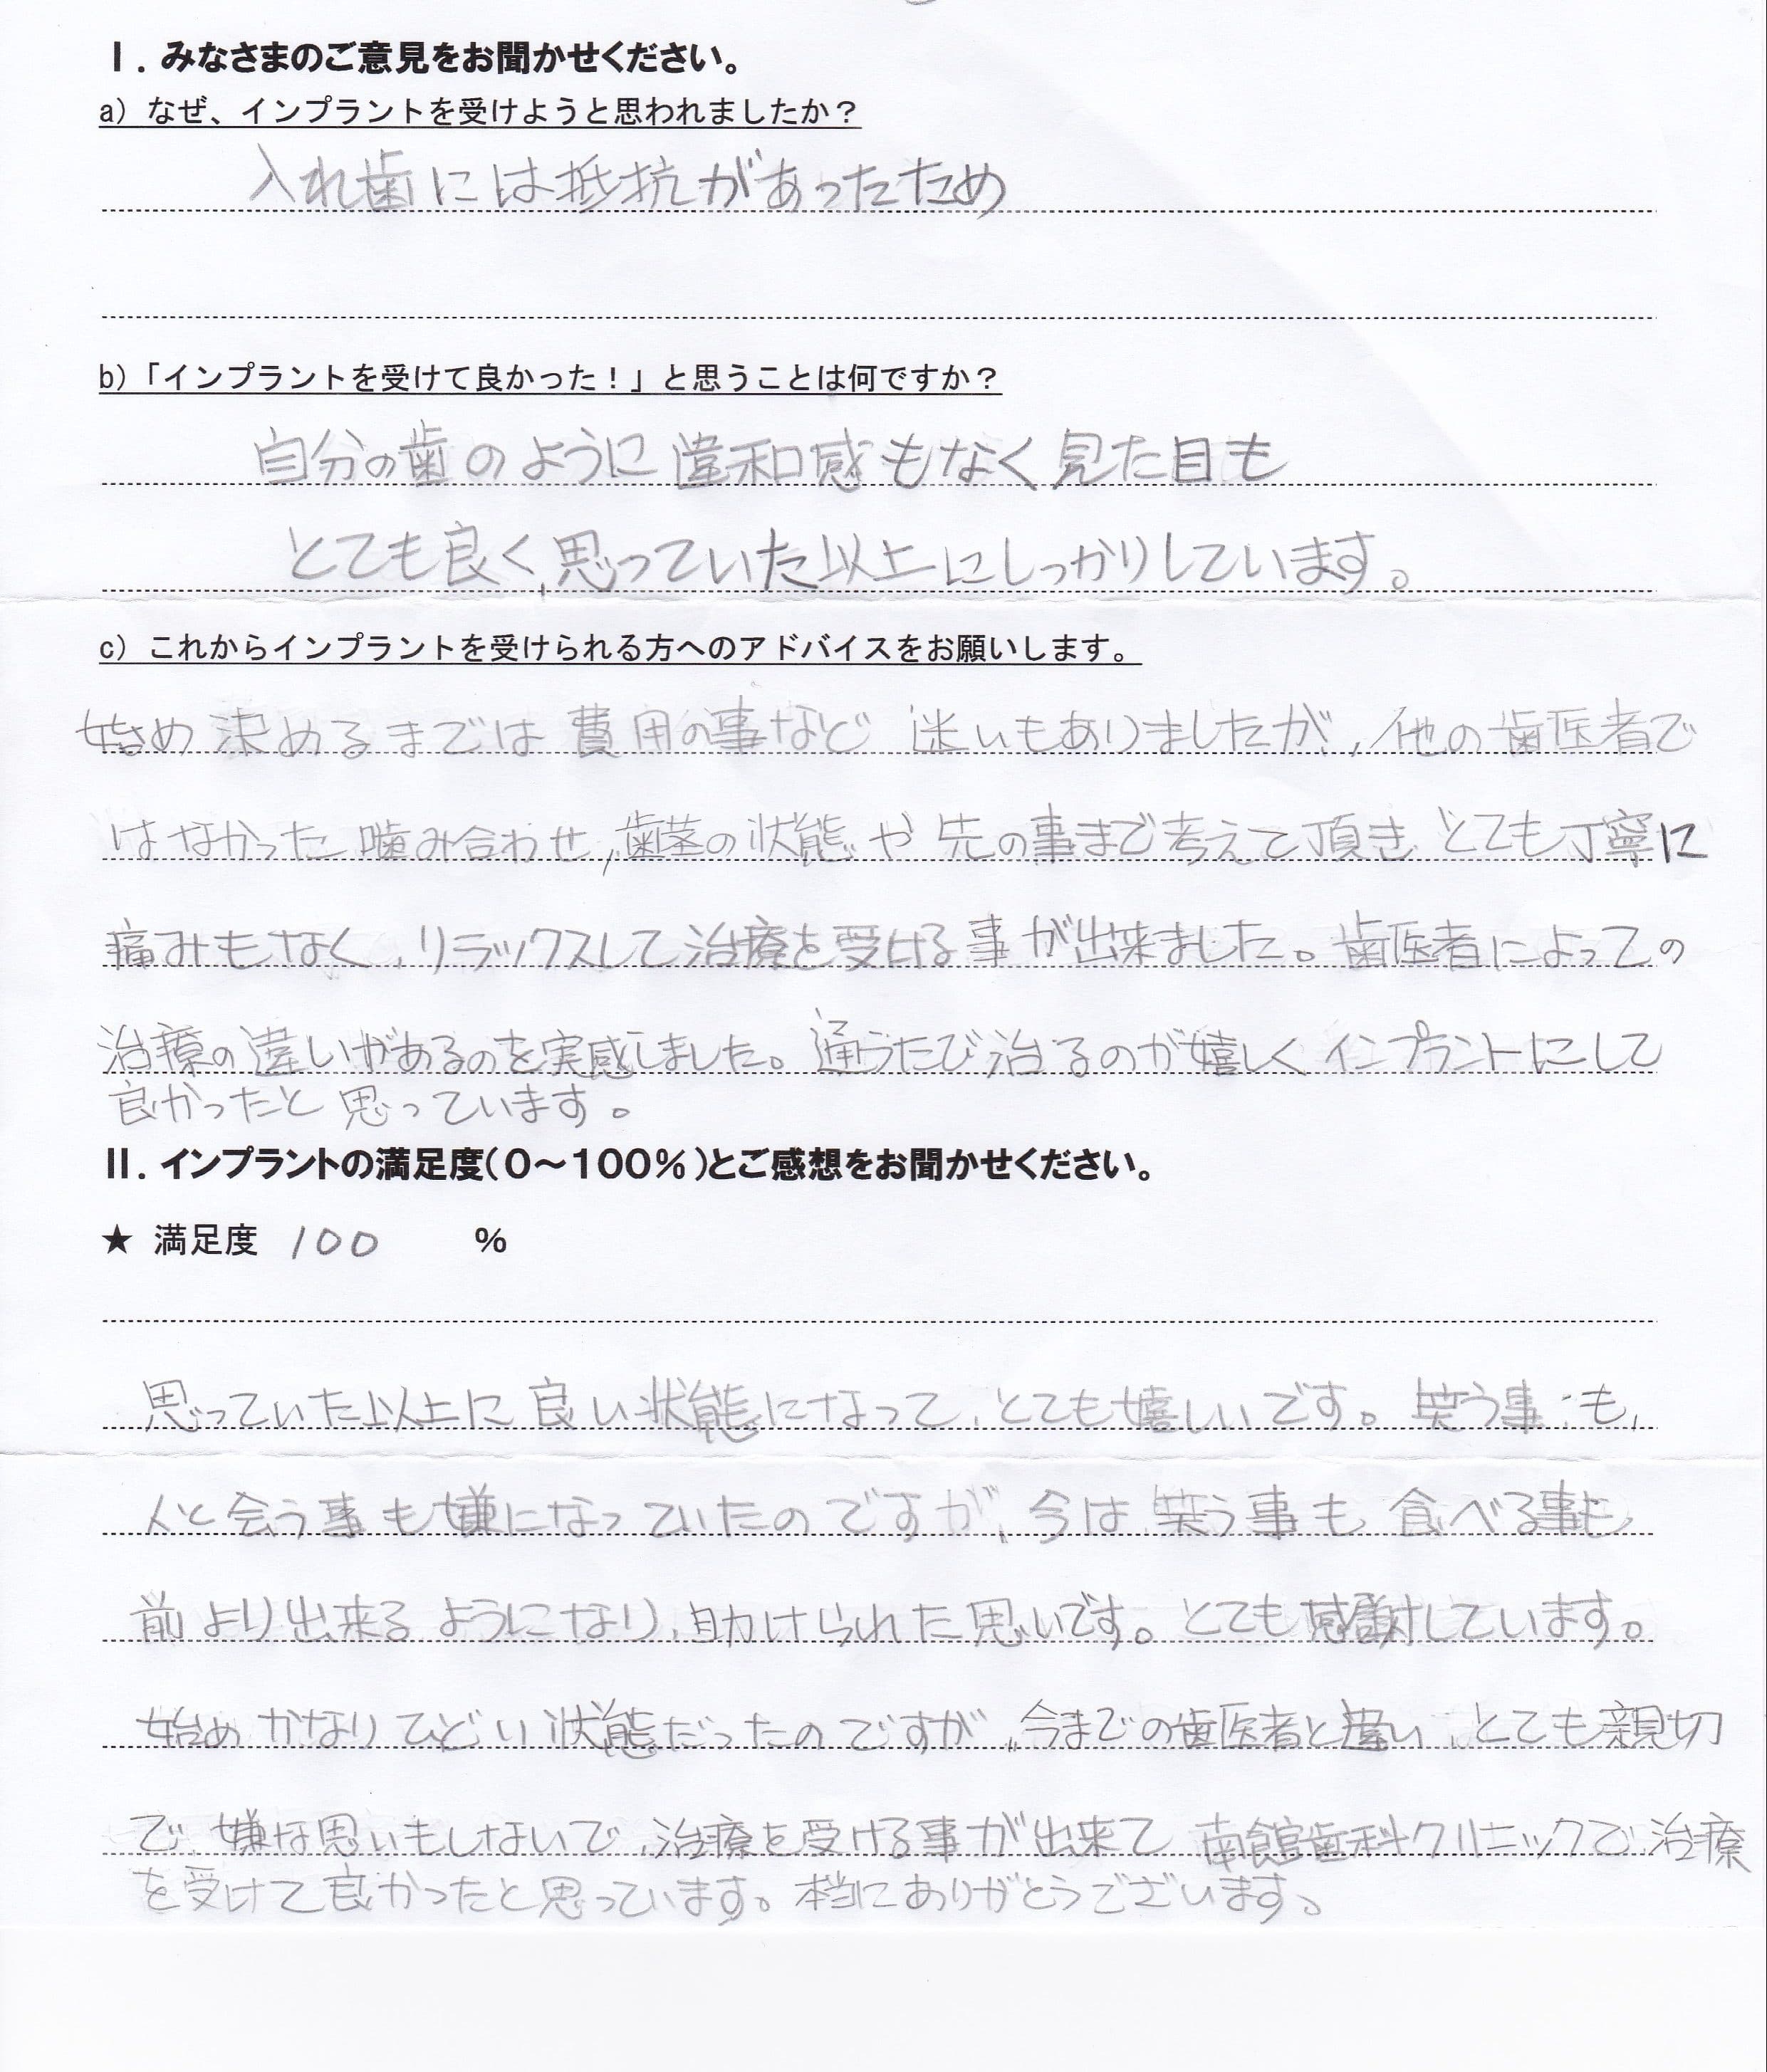 Ⅰ. みなさまのご意見をお聞かせください。
a) なぜ、インプラントを受けようと思われましたか？
入れ歯には抵抗があったため
b)「インプラントを受けて良かった！」と思うことは何ですか？
自分の歯のように違和感もなく見た目も
とても良く、思っていた以上にしっかりしています。
c) これからインプラントを受けられる方へのアドバイスをお願いします。
始め決めるまでは費用の事など迷いもありましたが、他の歯医者で
はなかった噛み合わせ、歯茎の状態や先の事まで考えて頂きとても丁寧に
痛みもなく、リラックスして治療を受ける事が出来ました。歯医者によっての
治療の違いがあるのを実感しました。通うたび治るのが嬉しくインプラントにして
良かったと思っています。
Ⅱ. インプラントの満足度(０～１００％)とご感想をお聞かせください。
★ 満足度 100 %
思っていた以上に良い状態になって、とても嬉しいです。笑う事も、
人と会う事も嫌になっていたのですが、今は笑う事も食べる事も
前より出来るようになり、助けられた思いです。とても感謝しています。
始めかなりひどい状態だったのですが、今までの歯医者と違い、とても親切
で、嫌な思いもしないで、治療を受ける事が出来て南館歯科クリニックで治療
を受けて良かったと思っています。本当にありがとうございます。